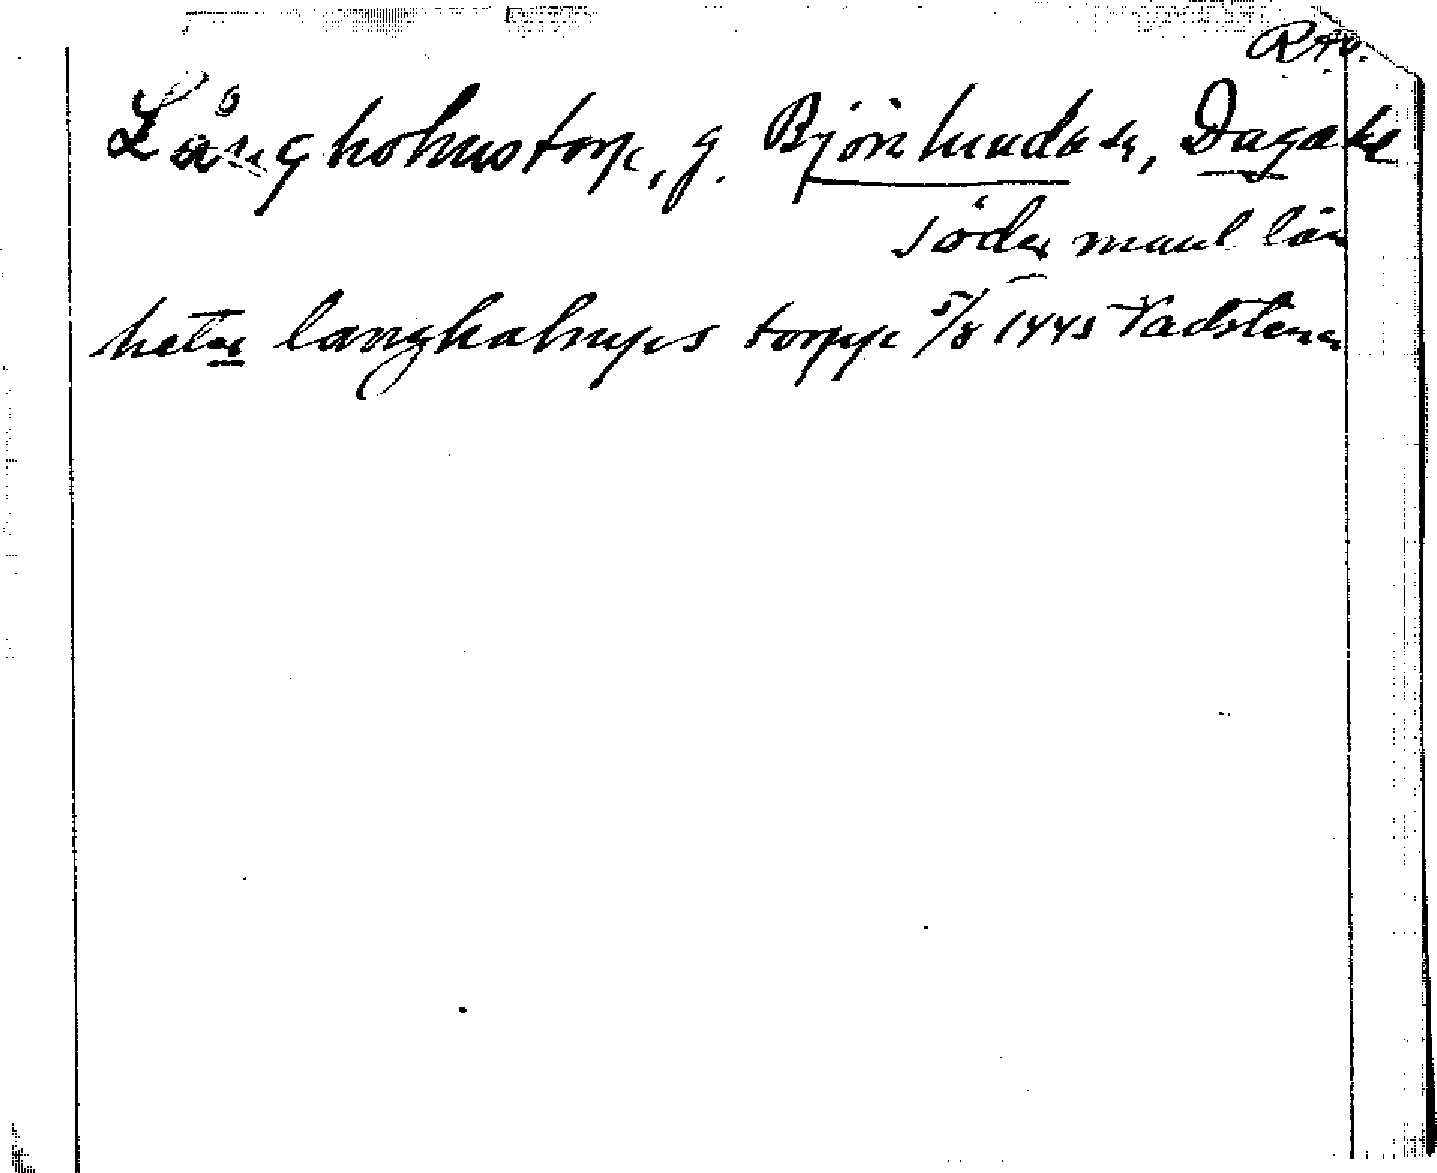 Rtv.
Långholmstorp, g. Björnlunda sn, Daga hd
Söderманl län
heter langhalmps torpp 5/8 1445 Vadstena